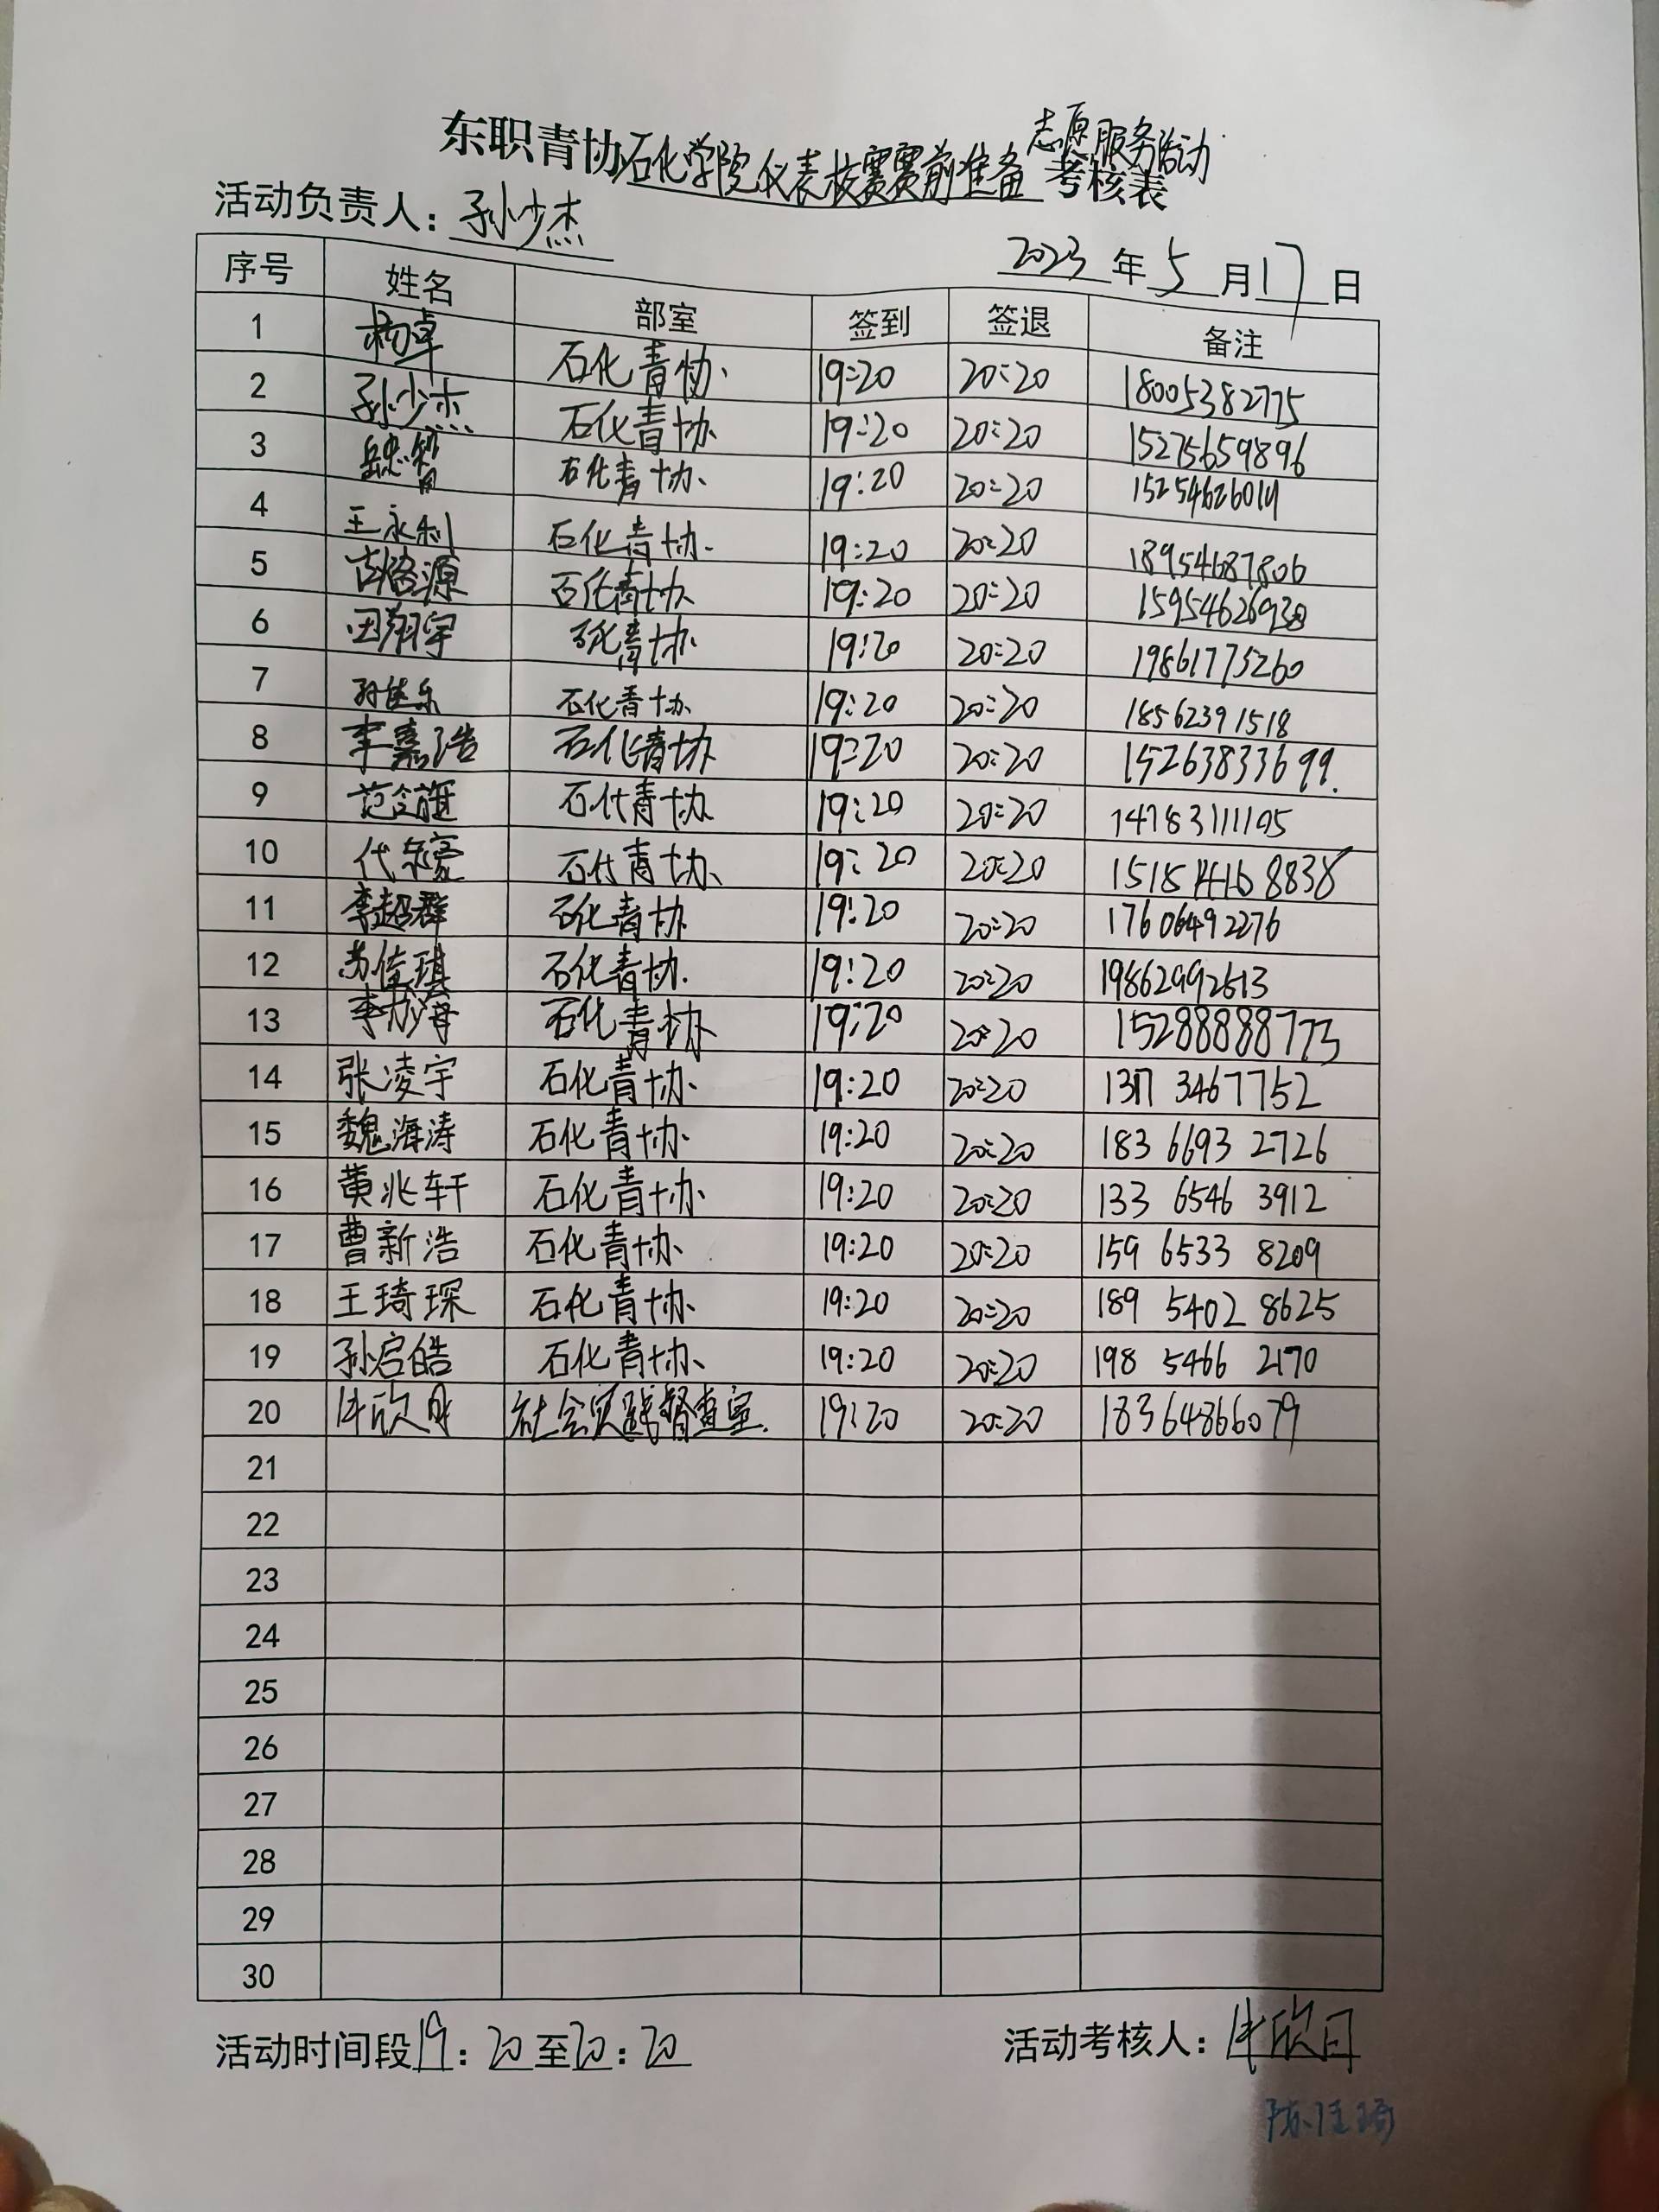 东职青协石化学院仪表技赛赛前准备志愿服务活动考核表
活动负责人：孙少杰
2023年5月17日
序号 姓名 部室 签到 签退 备注
1 杨卓 石化青协 19:20 20:20 18005382775
2 孙少杰 石化青协 19:20 20:20 15275659896
3 岳忠智 石化青协 19:20 20:20
4 王永利 石化青协 19:20 20:20 18954687806
5 石化青协 19:20 20:20 15954626938
6 田翔宇 石化青协 19:20 20:20 19861775260
7 孙佳乐 石化青协 19:20 20:20 18562391518
8 李嘉浩 石化青协 19:20 20:20 15263833699.
9 石化青协 19:20 20:20 14783111195
10 石化青协 19:20 20:20
11 李超群 石化青协 19:20 20:20 17606492276
12 苏俊琪 石化青协 19:20 20:20 19862992613
13 石化青协 19:20 20:20 15288888773
14 张凌宇 石化青协 19:20 20:20 137 3467 7752
15 魏海涛 石化青协 19:20 20:20 183 6693 2726
16 黄兆轩 石化青协 19:20 20:20 133 6546 3912
17 曹新浩 石化青协 19:20 20:20 159 6533 8209
18 王琦琛 石化青协 19:20 20:20 189 5402 8625
19 孙启皓 石化青协 19:20 20:20 198 5466 2170
20 牛欣月 社会实践督查室 19:20 20:20 18364866079
21
22
23
24
25
26
27
28
29
30
活动时间段19：20至20：20
活动考核人：牛欣月